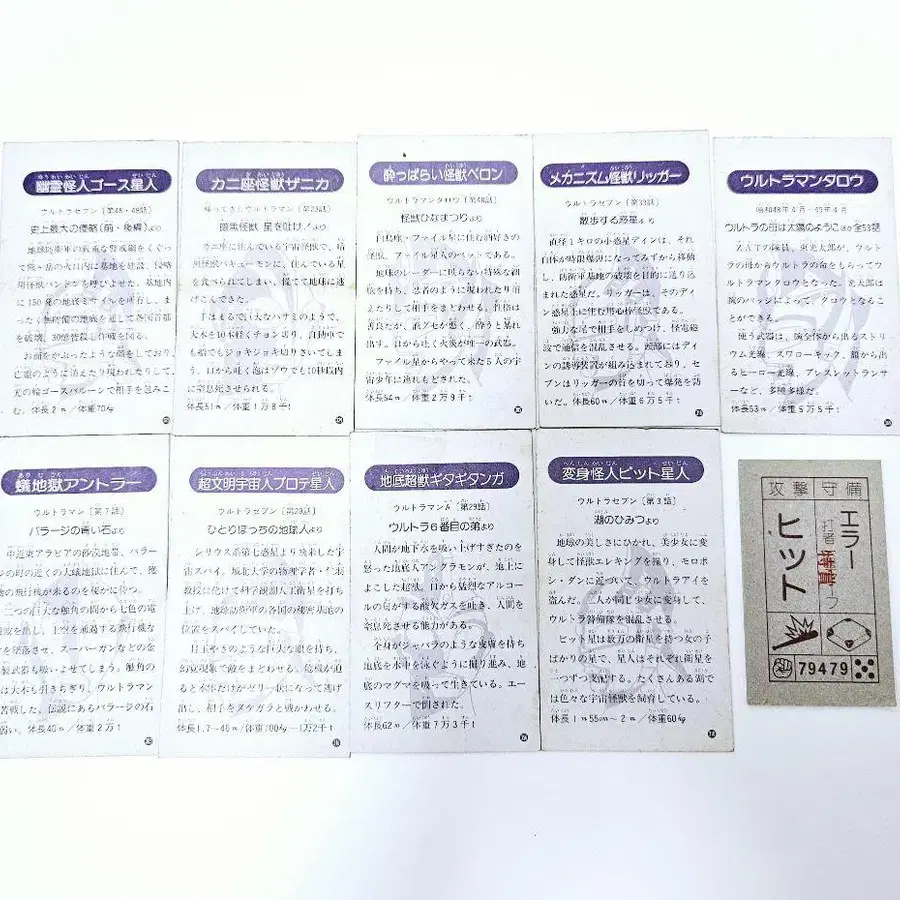 幽霊怪人ゴース星人
ウルトラセブン〔第48・49話〕
史上最大の侵略(前・後編)より
地球防衛軍の厳重な警戒網をくぐっ
て熊ヶ岳の火口内に基地を建設、侵略
用怪獣パンドンを呼びよせた。基地内
に150発の地底ミサイルを所有し、ま
ったく無防備の地底を通じて各国首都
を破壊、30億皆殺し作戦を図る。
お面をかぶったような顔をしており、
亡霊のように消えたり現われたりして、
天の輪ゴースバルーンで相手を包みこ
む。体長2m/体重70kg
カニ座怪獣ザニカ
帰ってきたウルトラマン〔第23話〕
暗黒怪獣 星を吐け!より
カニ座に住んでいる宇宙怪獣で、暗
黒怪獣バキューモンに、住んでいる星
を食べられてしまい、慌てて地球に逃
げこんできた。
手はまるで巨大なハサミのようで、
大木を10本軽くチョン切り、自動車で
も船でもジョキジョキ切りきざいてしま
う。口から吐く泡はゾウでも10秒以内
に窒息死させられる。
体長51m/体重1万8千t
酔っぱらい怪獣ベロン
ウルトラマンタロウ〔第48話〕
怪獣ひなまつりより
白鳥座・ファイル星に住む酒好きの
怪獣。ファイル星人のペットである。
地球のレーダーに映らない特殊な細
胞を持ち、忍者のように現われたり消
えたりして相手をまどわせる。性格は
善良だが、酒グセが悪く、酔うと暴れ
出す。口から吐く火炎が唯一の武器。
ファイル星からやって来た5人の宇
宙少年に連れもどされた。
体長54m/体重2万9千t
メカニズム怪獣リッガー
ウルトラセブン〔第33話〕
散歩する惑星より
直径1キロの小惑星ディンは、それ
自体が時限爆弾になってみずから移動
し、防衛軍基地の破壊を目的に送り込
まれた惑星だ。リッガーは、そのディ
ン惑星上に住む用心棒怪獣である。
強力な尾で相手をしめつけ、怪電磁
波で通信を混乱させる。頭部にはディ
ンの誘導装置が組み込まれており、セ
ブンはリッガーの首を切って爆発を防
いだ。体長60m/体重6万5千t
ウルトラマンタロウ
昭和48年4月~49年4月
ウルトラの母は太陽のようにほか全53話
ZATの隊員、東光太郎が、ウルト
ラの母からウルトラの命をもらってウ
ルトラマンタロウとなった。光太郎は
腕のバッジによって、タロウとなるこ
とができる。
使う武器は、腕全体から出るストリ
ウム光線、スワローキック、額から出
るヒーロー光線、ブレスレットランサ
ーなど、多種多様だ。
体長53m/体重5万5千t
蟻地獄アントラー
ウルトラマン〔第7話〕
バラージの青い石より
中近東アラビアの砂漠地帯、バラー
ジの町の近くの大蟻地獄に住んで、獲
物の飛行機が来るのを秘かに待つ。
二つの巨大な触角の間から七色の電
磁波を出し、上空を通過する飛行機な
どを墜落させ、スーパーガンなどの金
属武器も吸いよせてしまう。触角の
は大木も引きちぎり、ウルトラマン
苦戦した。伝説にあるバラージの石
弱い。体長40m/体重2万t
超文明宇宙人プロテ星人
ウルトラセブン〔第29話〕
ひとりぼっちの地球人より
シリウス系第七惑星より飛来した宇
宙スパイ。城北大学の物理学者・仁羽
教授に化けて科学観測人工衛星を打ち
上げ、地球防衛軍の各国の秘密基地の
位置をスパイしていた。
目玉やきのような巨大な眼を持ち、
幻覚現象で敵をまどわせる。危機が迫
ると本体だけがゼリー状になって逃げ
出し、相手をヌケガラと戦わせる。
体長1.7~46m/体重100kg~1万2千t
地底超獣ギタギタンガ
ウルトラマンA〔第29話〕
ウルトラ6番目の弟より
人間が地下水を吸い上げすぎたのを
怒った地底人アングラモンが、地上に
よこした超獣。口から猛烈なアルコー
ルの匂がする酸欠ガスを吐き、人間を
窒息死させる能力がある。
全身がジャバラのような皮膚を持ち
地底を水中を泳ぐように掘り進み、地
底のマグマを吸って生きている。エー
スリフターで倒された。
体長62m/体重7万3千t
変身怪人ピット星人
ウルトラセブン〔第3話〕
湖のひみつより
地球の美しさにひかれ、美少女に変
身して怪獣エレキングを操り、モロボ
シ・ダンに近づいて、ウルトラアイを
盗んだ。二人が同じ少女に変身して、
ウルトラ警備隊を混乱させる。
ピット星は数万の衛星を持つ女の子
ばかりの星で、星人はそれぞれ衛星を
一つずつ支配する。たくさんある湖で
は色々な宇宙怪獣を飼育している。
体長1m55cm~2m/体重60kg
攻撃守備
ヒット
エラー
打者
79479